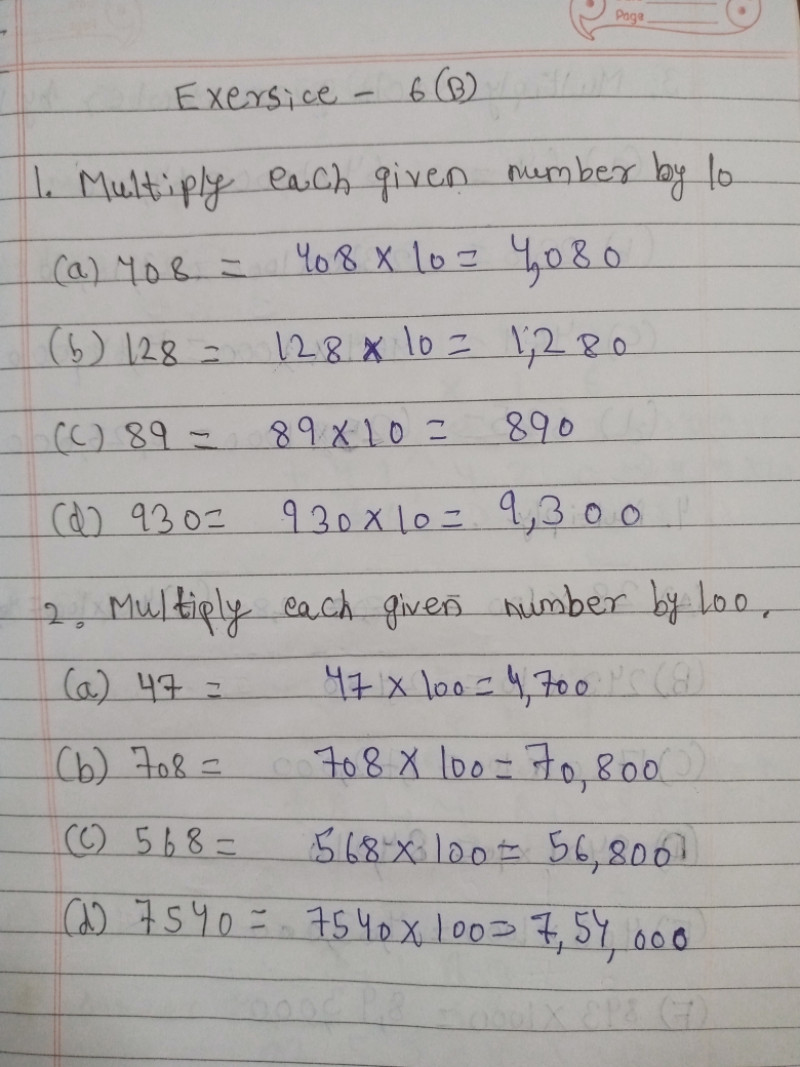 Page
Exersice - 6(B)
1. Multiply each given number by 10
(a) 408 = 408 × 10 = 4,080
(b) 128 = 128 × 10 = 1,280
(c) 89 = 89 × 10 = 890
(d) 930 = 930 × 10 = 9,300
2. Multiply each given number by 100.
(a) 47 = 47 × 100 = 4,700
(b) 708 = 708 × 100 = 70,800
(c) 568 = 568 × 100 = 56,800
(d) 7540 = 7540 × 100 = 7,54,000